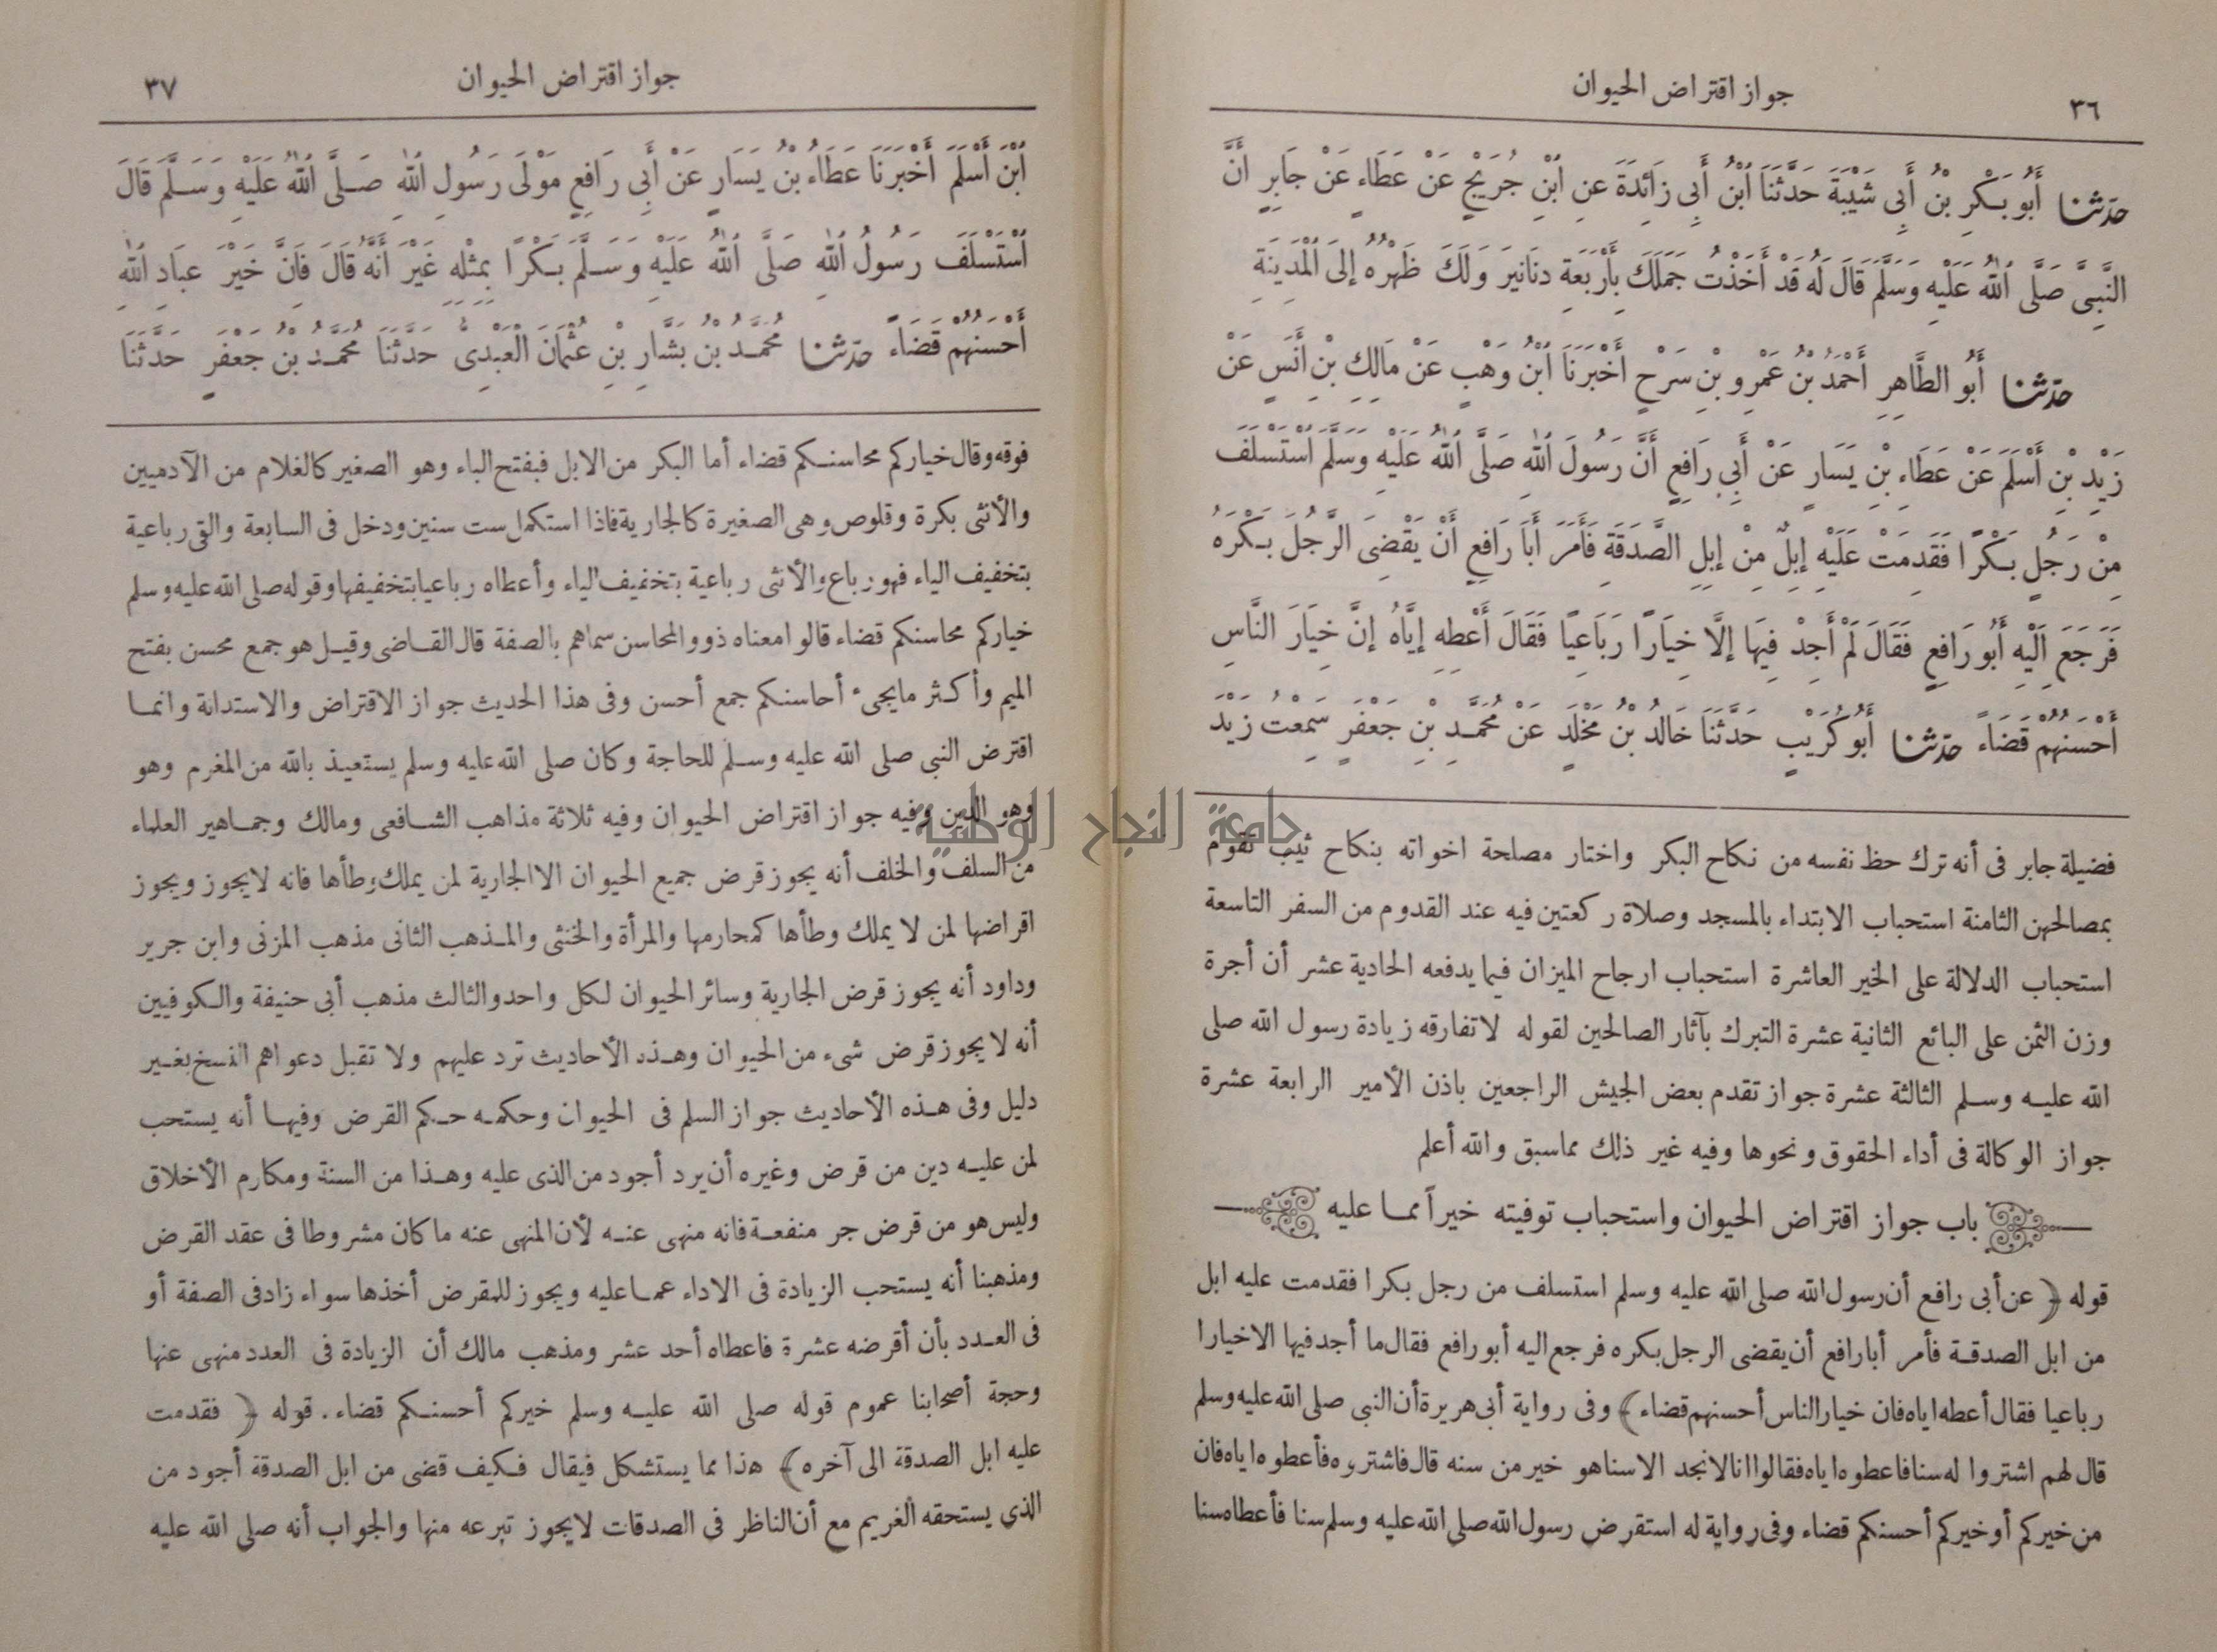 ٣٦
جواز اقتراض الحيوان
حدثنا أَبُو بَكْرِ بْنُ أَبِي شَيْبَةَ حَدَّثَنَا ابْنُ أَبِي زَائِدَةَ عَنِ ابْنِ جُرَيْجٍ عَنْ عَطَاءٍ عَنْ جَابِرٍ أَنَّ
النَّبِيَّ صَلَّى اللهُ عَلَيْهِ وَسَلَّمَ قَالَ لَهُ قَدْ أَخَذْتُ جَمَلَكَ بِأَرْبَعَةِ دَنَانِيرَ وَلَكَ ظَهْرُهُ إِلَى الْمَدِينَةِ
حدثنا أَبُو الطَّاهِرِ أَحْمَدُ بْنُ عَمْرِو بْنِ سَرْحٍ أَخْبَرَنَا ابْنُ وَهْبٍ عَنْ مَالِكِ بْنِ أَنَسٍ عَنْ
زَيْدِ بْنِ أَسْلَمَ عَنْ عَطَاءِ بْنِ يَسَارٍ عَنْ أَبِي رَافِعٍ أَنَّ رَسُولَ اللهِ صَلَّى اللهُ عَلَيْهِ وَسَلَّمَ اسْتَسْلَفَ
مِنْ رَجُلٍ بَكْرًا فَقَدِمَتْ عَلَيْهِ إِبِلٌ مِنْ إِبِلِ الصَّدَقَةِ فَأَمَرَ أَبَا رَافِعٍ أَنْ يَقْضِيَ الرَّجُلَ بَكْرَهُ
فَرَجَعَ إِلَيْهِ أَبُو رَافِعٍ فَقَالَ لَمْ أَجِدْ فِيهَا إِلَّا خِيَارًا رَبَاعِيًا فَقَالَ أَعْطِهِ إِيَّاهُ إِنَّ خِيَارَ النَّاسِ
أَحْسَنُهُمْ قَضَاءً حدثنا أَبُو كُرَيْبٍ حَدَّثَنَا خَالِدُ بْنُ مَخْلَدٍ عَنْ مُحَمَّدِ بْنِ جَعْفَرٍ سَمِعْتُ زَيْدَ
فضيلة جابر فى أنه ترك حظ نفسه من نكاح البكر واختار مصلحة اخواته بنكاح ثيب تقوم
بمصالحهن الثامنة استحباب الابتداء بالمسجد وصلاة ركعتين فيه عند القدوم من السفر التاسعة
استحباب الدلالة على الخير العاشرة استحباب ارجاح الميزان فيما يدفعه الحادية عشر أن أجرة
وزن الثمن على البائع الثانية عشرة التبرك بآثار الصالحين لقوله لا تفارقه زيادة رسول الله صلى
الله عليه وسلم الثالثة عشرة جواز تقدم بعض الجيش الراجعين باذن الأمير الرابعة عشرة
جواز الوكالة فى أداء الحقوق ونحوها وفيه غير ذلك مما سبق والله أعلم
باب جواز اقتراض الحيوان واستحباب توفيته خيراً مما عليه
قوله ﴿ عن أبى رافع أن رسول الله صلى الله عليه وسلم استسلف من رجل بكرا فقدمت عليه ابل
من ابل الصدقة فأمر أبا رافع أن يقضى الرجل بكره فرجع اليه أبو رافع فقال ما أجد فيها الا خيارا
رباعيا فقال أعطه اياه فان خيار الناس أحسنهم قضاء ﴾ وفى رواية أبى هريرة أن النبى صلى الله عليه وسلم
قال لهم اشتروا له سنا فاعطوه اياه فقالوا انا لا نجد الا سنا هو خير من سنه قال فاشتروه فأعطوه اياه فان
من خيركم أو خيركم أحسنكم قضاء وفى رواية له استقرض رسول الله صلى الله عليه وسلم سنا فأعطاه سنا
جواز اقتراض الحيوان
٣٧
ابْنَ أَسْلَمَ أَخْبَرَنَا عَطَاءُ بْنُ يَسَارٍ عَنْ أَبِي رَافِعٍ مَوْلَى رَسُولِ اللهِ صَلَّى اللهُ عَلَيْهِ وَسَلَّمَ قَالَ
اسْتَسْلَفَ رَسُولُ اللهِ صَلَّى اللهُ عَلَيْهِ وَسَلَّمَ بَكْرًا بِمِثْلِهِ غَيْرَ أَنَّهُ قَالَ فَإِنَّ خَيْرَ عِبَادِ اللهِ
أَحْسَنُهُمْ قَضَاءً حدثنا مُحَمَّدُ بْنُ بَشَّارِ بْنِ عُثْمَانَ الْعَبْدِيُّ حَدَّثَنَا مُحَمَّدُ بْنُ جَعْفَرٍ حَدَّثَنَا
فوقه وقال خياركم محاسنكم قضاء أما البكر من الابل فبفتح الباء وهو الصغير كالغلام من الآدميين
والأنثى بكرة وقلوص وهى الصغيرة كالجارية فاذا استكمل ست سنين ودخل فى السابعة وألقى رباعية
بتخفيف الياء فهو رباع والأنثى رباعية بتخفيف الياء وأعطاه رباعيا بتخفيفها وقوله صلى الله عليه وسلم
خياركم محاسنكم قضاء قالوا معناه ذوو المحاسن سماهم بالصفة قال القاضى وقيل هو جمع محسن بفتح
الميم وأكثر ما يجىء أحاسنكم جمع أحسن وفى هذا الحديث جواز الاقتراض والاستدانة وانما
اقترض النبى صلى الله عليه وسلم للحاجة وكان صلى الله عليه وسلم يستعيذ بالله من المغرم وهو
وهو الدين وفيه جواز اقتراض الحيوان وفيه ثلاثة مذاهب الشافعى ومالك وجماهير العلماء
من السلف والخلف أنه يجوز قرض جميع الحيوان الا الجارية لمن يملك وطأها فانه لا يجوز ويجوز
اقراضها لمن لا يملك وطأها كمحارمها والمرأة والخنثى والمذهب الثانى مذهب المزنى وابن جرير
وداود أنه يجوز قرض الجارية وسائر الحيوان لكل واحد والثالث مذهب أبى حنيفة والكوفيين
أنه لا يجوز قرض شىء من الحيوان وهذه الأحاديث ترد عليهم ولا تقبل دعواهم النسخ بغير
دليل وفى هذه الأحاديث جواز السلم فى الحيوان وحكمه حكم القرض وفيها أنه يستحب
لمن عليه دين من قرض وغيره أن يرد أجود من الذى عليه وهذا من السنة ومكارم الأخلاق
وليس هو من قرض جر منفعة فانه منهى عنه لأن المنهى عنه ما كان مشروطا فى عقد القرض
ومذهبنا أنه يستحب الزيادة فى الاداء عما عليه ويجوز للمقرض أخذها سواء زاد فى الصفة أو
فى العدد بأن أقرضه عشرة فاعطاه أحد عشر ومذهب مالك أن الزيادة فى العدد منهى عنها
وحجة أصحابنا عموم قوله صلى الله عليه وسلم خيركم أحسنكم قضاء. قوله ﴿ فقدمت
عليه ابل الصدقة الى آخره ﴾ هذا مما يستشكل فيقال فكيف قضى من ابل الصدقة أجود من
الذى يستحقه الغريم مع أن الناظر فى الصدقات لا يجوز تبرعه منها والجواب أنه صلى الله عليه
جامعة النجاح الوطنية